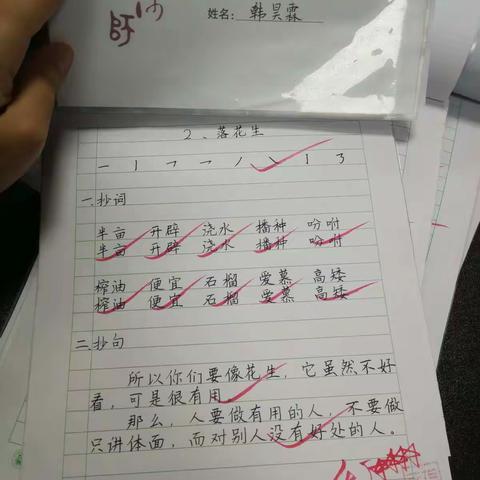 姓名：韩昊霖
2、落花生
一抄词
半亩 开辟 浇水 播种 吩咐
半亩 开辟 浇水 播种 吩咐
榨油 便宜 石榴 爱慕 高矮
榨油 便宜 石榴 爱慕 高矮
二抄句
所以你们要像花生，它虽然不好
看，可是很有用。
那么，人要做有用的人，不要做
只讲体面，而对别人没有好处的人。